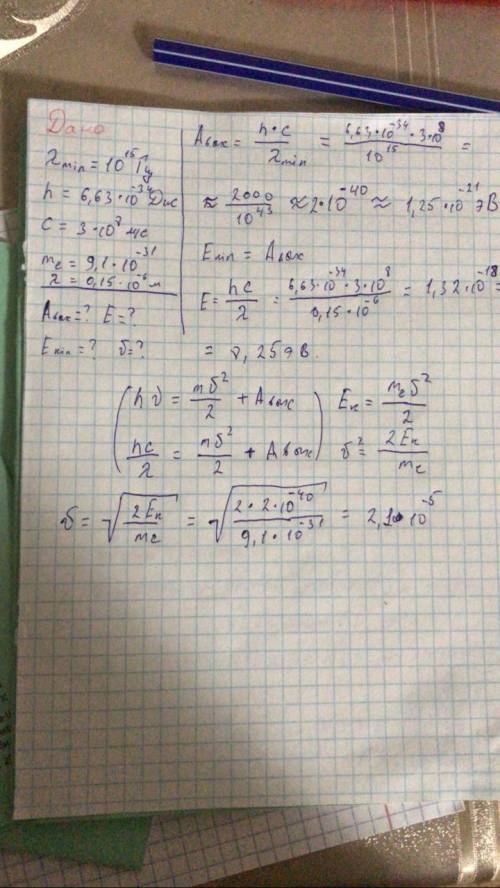 Дано
λmin = 10^15 Гц
h = 6,63·10^-34 Дж с
c = 3·10^8 мс
me = 9,1·10^-31
λ = 0,15·10^-6 м
Aвых = ? E = ?
Emin = ? υ = ?
Aвых = h·c / λmin = 6,63·10^-34 · 3·10^8 / 10^15 =
≈ 2000 / 10^43 ≈ 2·10^-40 ≈ 1,25·10^-21 эВ
Emin = Aвых
E = hc / λ = 6,63·10^-34 · 3·10^8 / 0,15·10^-6 = 1,32·10^-18 =
= 8,25 эВ.
(hν = mυ^2 / 2 + Aвых
hc / λ = mυ^2 / 2 + Aвых)
Eк = meυ^2 / 2
υ^2 = 2Eк / me
υ = √(2Eк / me) = √(2·2·10^-40 / 9,1·10^-31) = 2,1·10^-5